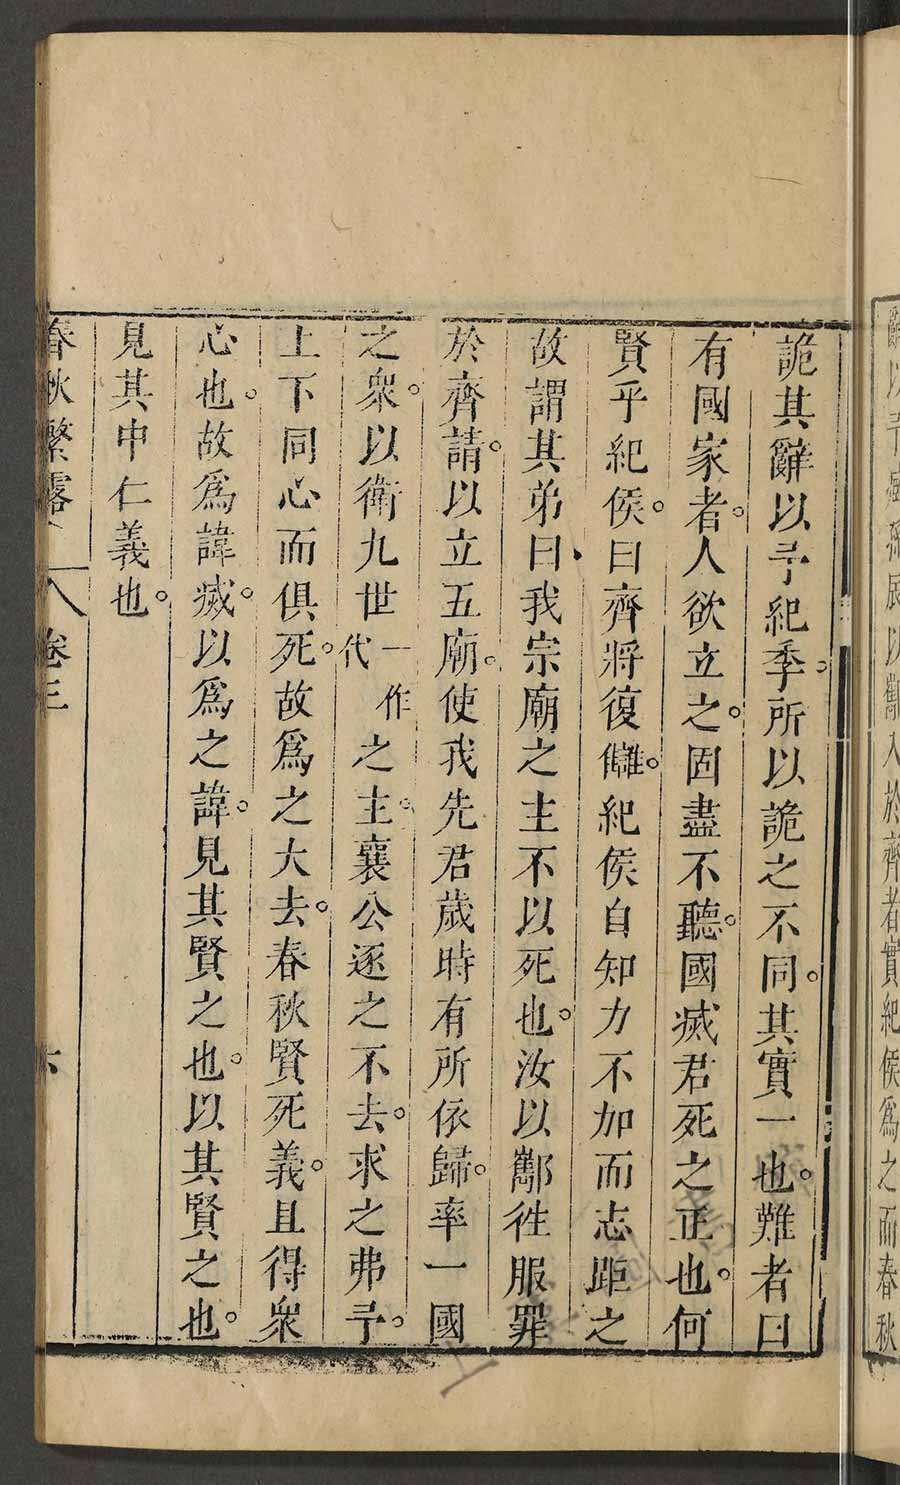 辭以予酅孫辰以酅入於齊者實紀侯爲之而春秋
詭其辭以予紀季。所以詭之不同。其實一也。難者曰
有國家者。人欲立之。固盡不聽。國滅君死之正也。何
賢乎紀侯。曰齊將復讎。紀侯自知力不加而志距之
故謂其弟曰我宗廟之主不以死也。汝以酅徃服罪
於齊請。以立五廟。使我先君歲時有所依歸。率一國
之衆。以衛九世一作代之主。襄公逐之不去。求之弗予。
上下同心而俱死。故爲之大去。春秋賢死義。且得衆
心也。故爲諱滅。以爲之諱。見其賢之也。以其賢之也。
見其中仁義也。
春秋繁露 卷三 六